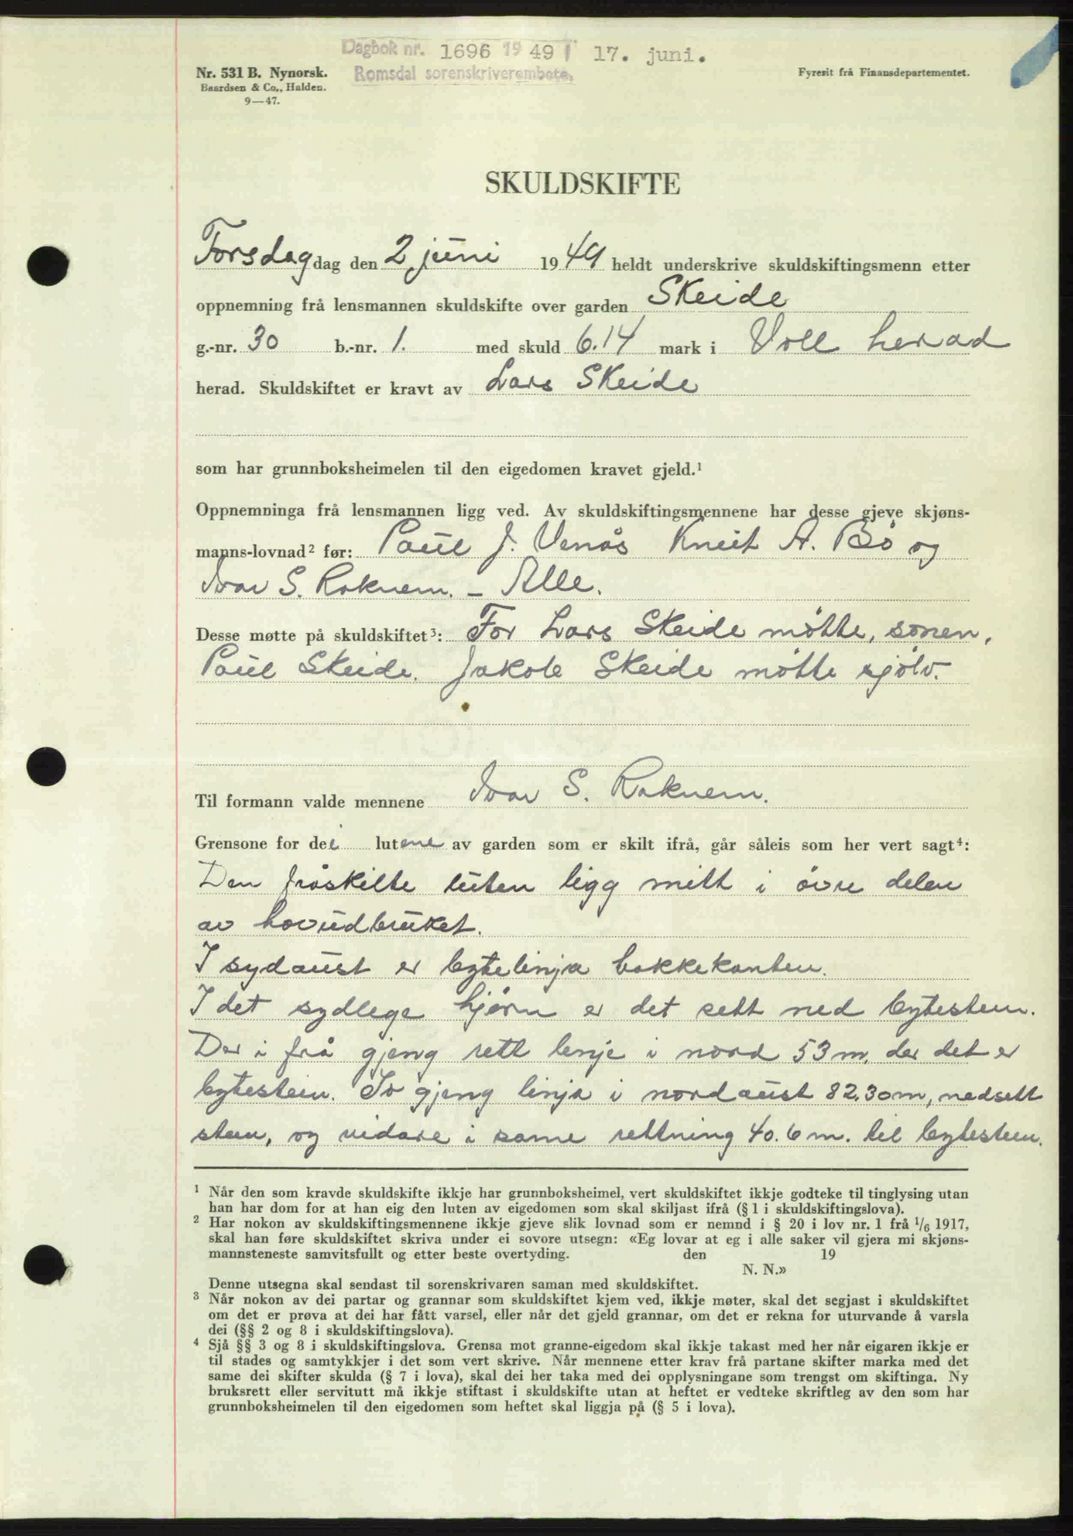 Dagbok nr. 1696 1949 17. juni.
Romsdal sorenskriverembete.
Nr. 531 B. Nynorsk.
Baardsen & Co., Halden.
9—47.
Fyresit frå Finansdepartementet.
SKULDSKIFTE
Torsdag dag den 2 juni 1949 heldt underskrive skuldskiftingsmenn etter
oppnemning frå lensmannen skuldskifte over garden Skeide
g.-nr. 30 b.-nr. 1. med skuld 6.14 mark i Voll herad
herad. Skuldskiftet er kravt av Lars Skeide
som har grunnboksheimelen til den eigedomen kravet gjeld.¹
Oppnemninga frå lensmannen ligg ved. Av skuldskiftingsmennene har desse gjeve skjøns-
manns-lovnad² før: Paul J. Venås Knut A. Bø og
Ivar S. Roknem. – Alle.
Desse møtte på skuldskiftet³: For Lars Skeide møtte, sonen,
Paul Skeide. Jakob Skeide møtte sjølv.
Til formann valde mennene Ivar S. Roknem.
Grensone for dei lutene av garden som er skilt ifrå, går såleis som her vert sagt⁴:
Den fråskilte luten ligg mitt i øvre delen
av hovudbruket.
I sydaust er bytelinja bakkekanten.
I det sydlege hjørn er det sett ned bytestein.
Der i frå gjeng rett linje i nord 53 m, der det er
bytestein. So gjeng linja i nordaust 82.30 m, nedsett
stein, og vidare i same rettning 40.6 m. til bytestein.
¹ Når den som kravde skuldskifte ikkje har grunnboksheimel, vert skuldskiftet ikkje godteke til tinglysing utan
han har dom for at han eig den luten av eigedomen som skal skiljast ifrå (§ 1 i skuldskiftingslova).
² Har nokon av skuldskiftingsmennene ikkje gjeve slik lovnad som er nemnd i § 20 i lov nr. 1 frå 1/6 1917,
skal han føre skuldskiftet skriva under ei sovore utsegn: «Eg lovar at eg i alle saker vil gjera mi skjøns-
mannsteneste samvitsfullt og etter beste overtyding. den 19
N. N.»
Denne utsegna skal sendast til sorenskrivaren saman med skuldskiftet.
³ Når nokon av dei partar og grannar som skuldskiftet kjem ved, ikkje møter, skal det segjast i skuldskiftet
om det er prøva at dei har fått varsel, eller når det gjeld grannar, om det er rekna for uturvande å varsla
dei (§§ 2 og 8 i skuldskiftingslova).
⁴ Sjå §§ 3 og 8 i skuldskiftingslova. Grensa mot granne-eigedom skal ikkje takast med her når eigaren ikkje er
til stades og samtykkjer i det som vert skrive. Når mennene etter krav frå partane skifter marka med det
same dei skifter skulda (§ 7 i lova), skal dei her taka med dei opplysningane som trengst om skiftinga. Ny
bruksrett eller servitutt må ikkje stiftast i skuldskifte utan at heftet er vedteke skriftleg av den som har
grunnboksheimelen til den eigedomen som heftet skal liggja på (§ 5 i lova).